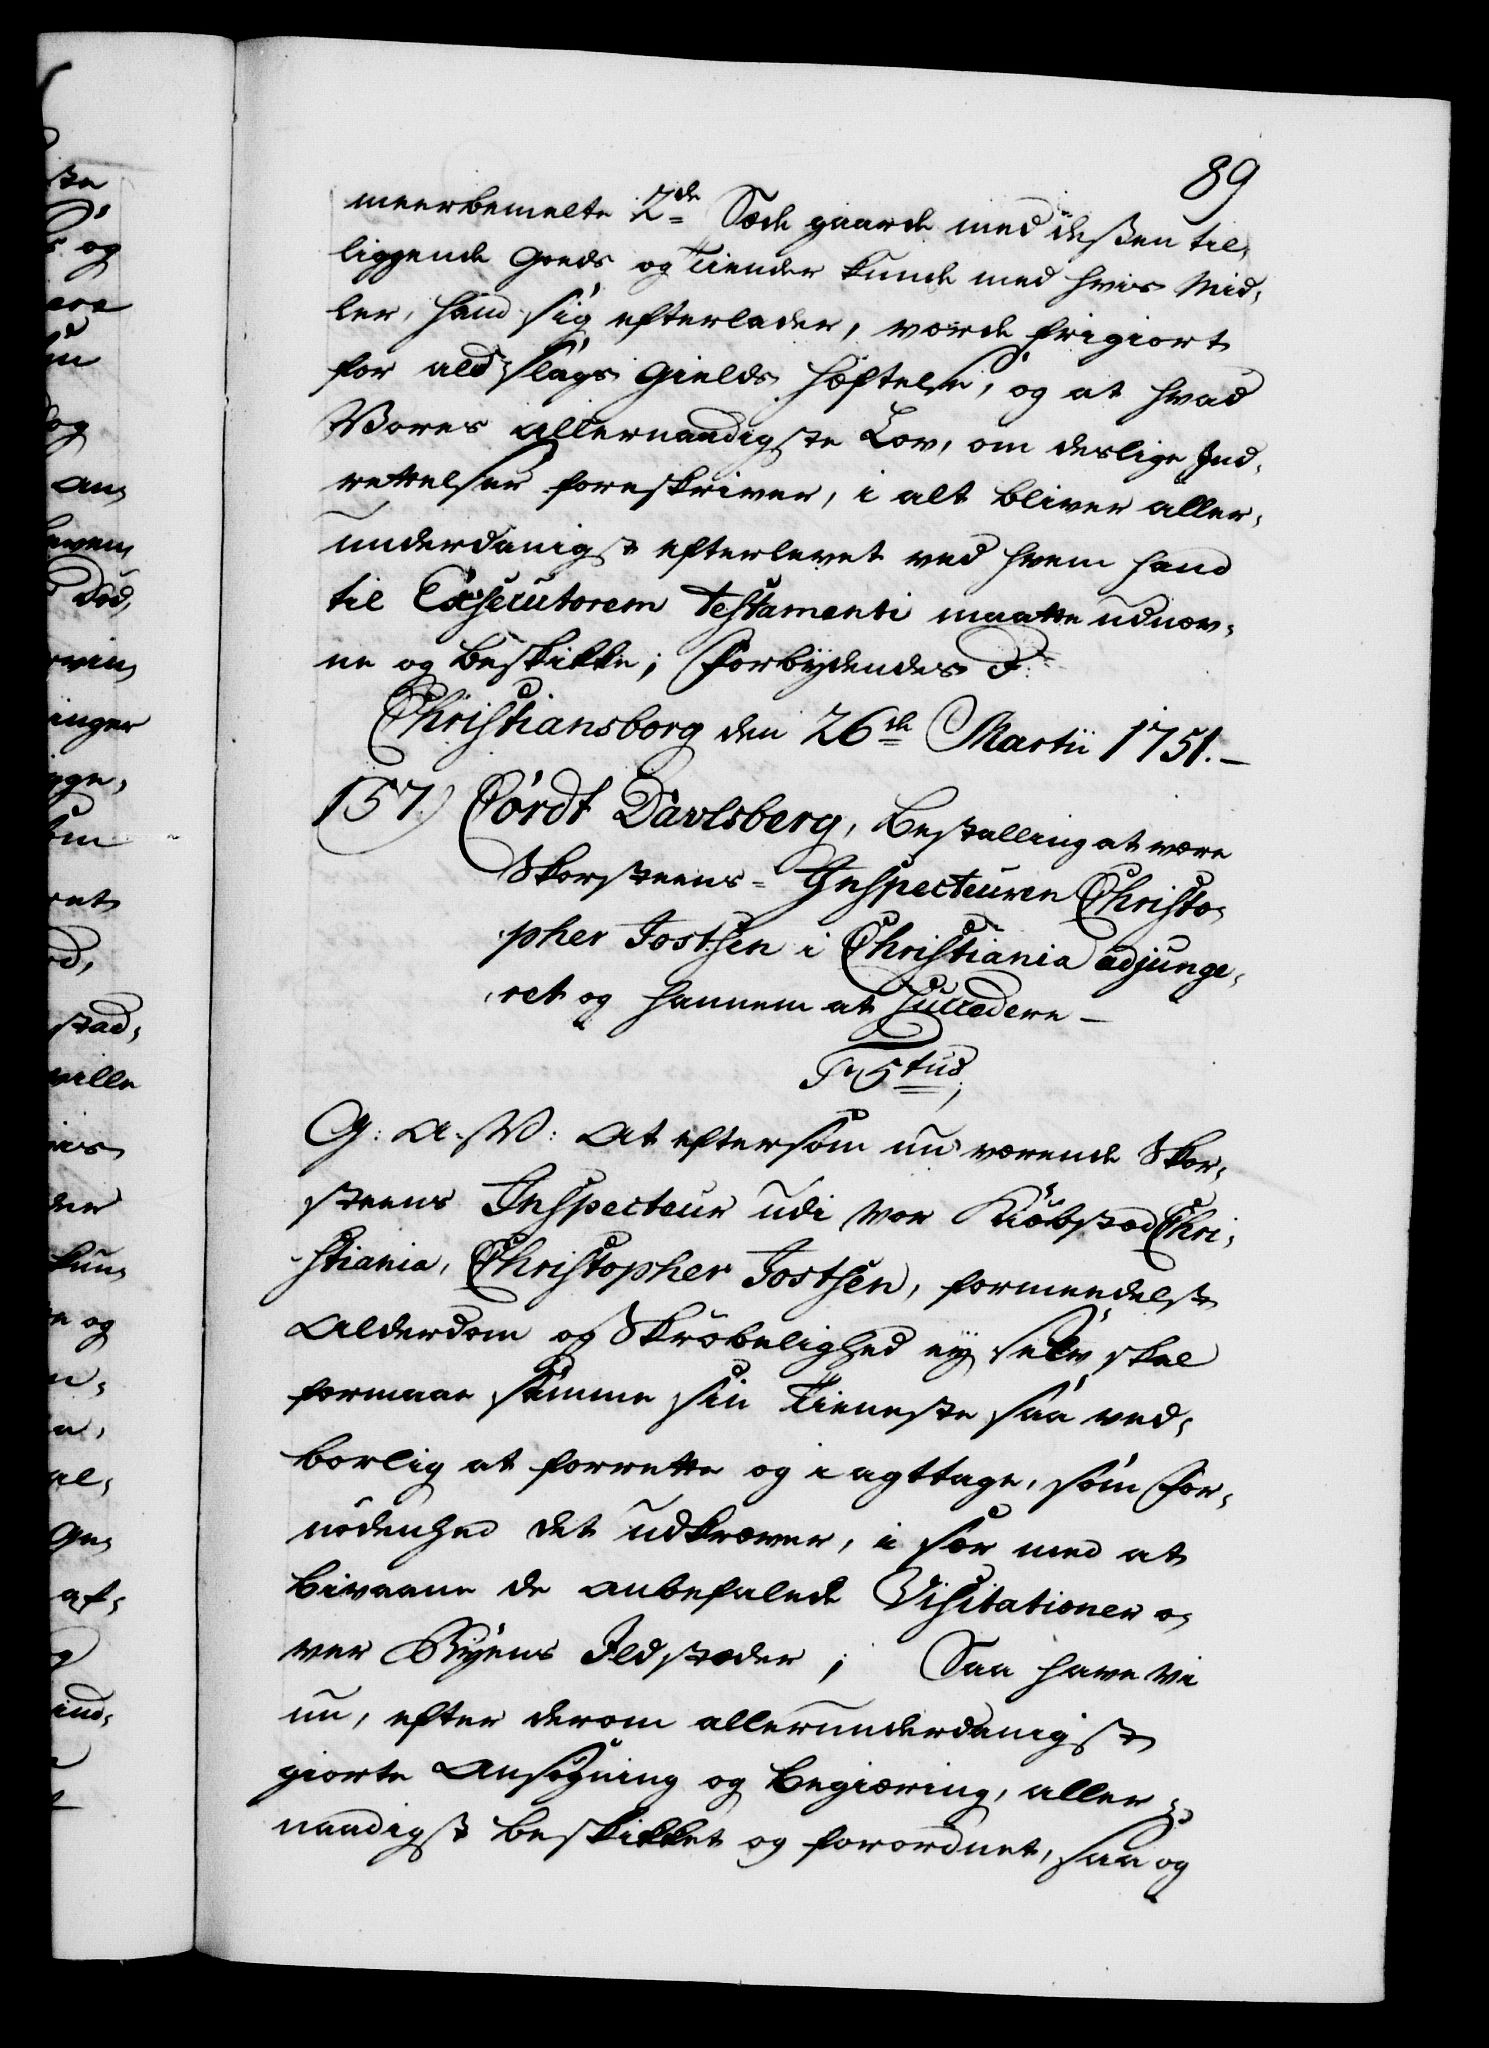 89
meerbemelte 2de Sæde gaarde med deßen til,
liggende Goeds og Tiender kunde med hvis Mid,
ler, hand sig efterlader, vorde frigiort
for ald slags Gields hæftelse, og at hvad
Vores allernaadigste Lov, om deslige Ind,
rettelser foreskriver, i alt bliver aller,
underdanigst efterlevet ved hvem hand
til Executorem Testamenti maatte udnæv,
ne og beskikke; Forbydendes P:
Christiansborg den 26de Martii 1751.–
157.) Cordt Davlsberg, Bestalling at være
Skorsteens-Inspecteuren Christo,
pher Jostsen i Christiania adjunge,
ret og hannem at succedere –
G: A: V: At eftersom nu værende Skor,
steens Inspecteur udi vor Kiøbstad Chri,
stiania, Christopher Jostsen, formedelst
Alderdom og Skrøbelighed ey selv skal
formaae samme sin Tieneste saa ved,
børlig at forrette og i agttage, som For,
nødenhed det udkræver, i sær med at
bivaane de anbefalede Visitationer o,
ver Byens Ildstæder; Saa have Vi
nu, efter derom allerunderdanigst
giorte Ansøgning og Begiæring, aller,
naadigst beskikket og forordnet, saa og